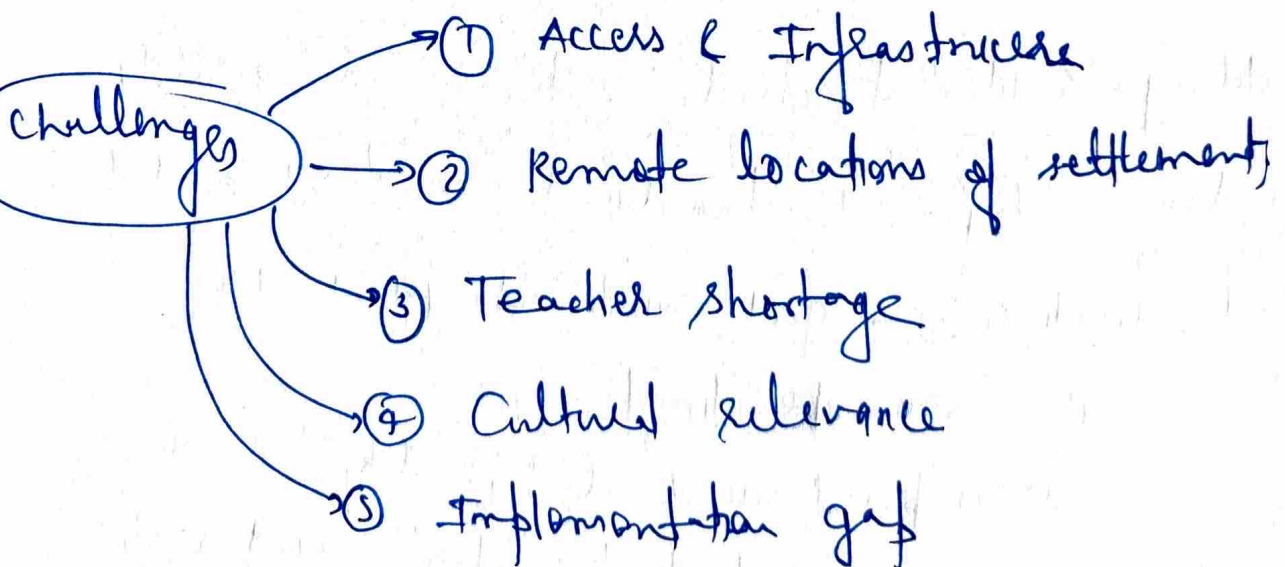 Challenges
① Access & Infrastructure
② Remote locations of settlements
③ Teacher shortage
④ Cultural relevance
⑤ Implementation gap